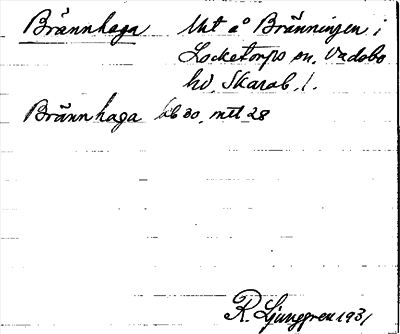 Brännhaga Uht å Bränningen i
Locketorps sn, Vadsbo
hd, Skarab. l.
Brännhaga hb 30, mtl 28
R. Ljunggren 1931